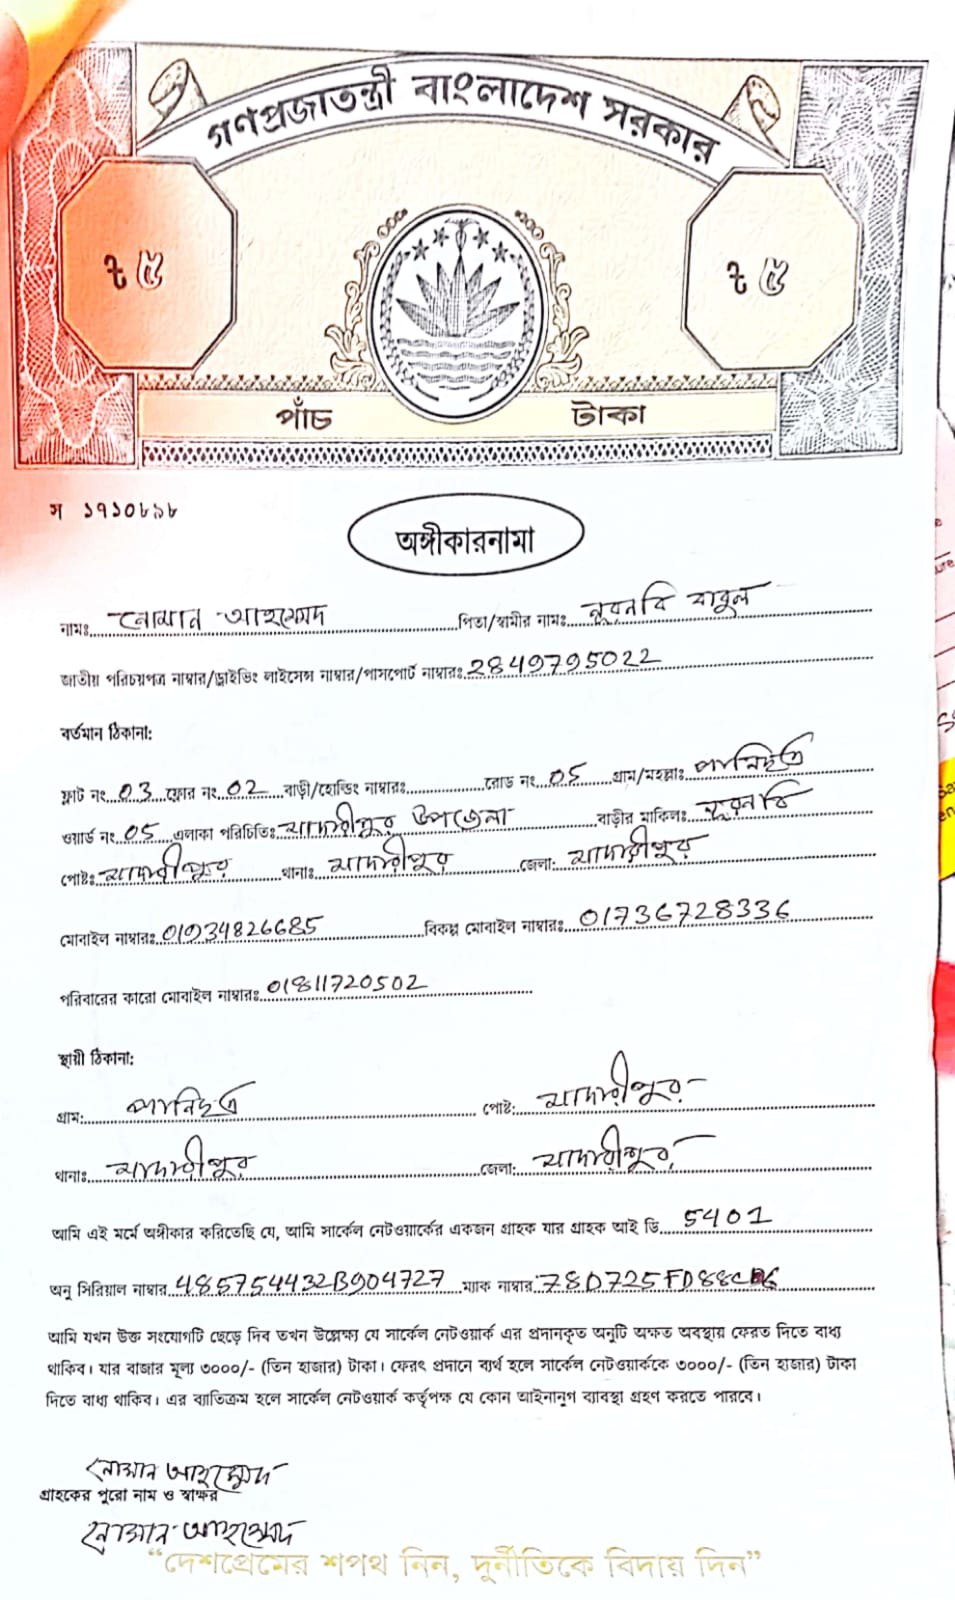 গণপ্রজাতন্ত্রী বাংলাদেশ সরকার
৳ ৫ ৳ ৫
পাঁচ টাকা
স ১৭১০৮৯৮
অঙ্গীকারনামা
নামঃ নোমান আহম্মেদ পিতা/স্বামীর নামঃ নুরনবি বাবুল
জাতীয় পরিচয়পত্র নাম্বার/ড্রাইভিং লাইসেন্স নাম্বার/পাসপোর্ট নাম্বারঃ 2849795022
বর্তমান ঠিকানা:
ফ্লাট নং 03 ফ্লোর নং 02 বাড়ী/হোল্ডিং নাম্বারঃ রোড নং 05 গ্রাম/মহল্লাঃ পানিছত্র
ওয়ার্ড নং 05 এলাকা পরিচিতিঃ মাদারীপুর উপজেলা বাড়ীর মালিকঃ নুরনবি
পোষ্টঃ মাদারীপুর থানাঃ মাদারীপুর জেলা: মাদারীপুর
মোবাইল নাম্বারঃ 01934826685 বিকল্প মোবাইল নাম্বারঃ 01736728336
পরিবারের কারো মোবাইল নাম্বারঃ 01811720502
স্থায়ী ঠিকানা:
গ্রাম: পানিছত্র পোষ্ট: মাদারীপুর
থানাঃ মাদারীপুর জেলা: মাদারীপুর
আমি এই মর্মে অঙ্গীকার করিতেছি যে, আমি সার্কেল নেটওয়ার্কের একজন গ্রাহক যার গ্রাহক আই ডি 5401
অনু সিরিয়াল নাম্বার 485754432B904727 ম্যাক নাম্বার 78D725FD88CB6
আমি যখন উক্ত সংযোগটি ছেড়ে দিব তখন উল্লেক্ষ্য যে সার্কেল নেটওয়ার্ক এর প্রদানকৃত অনুটি অক্ষত অবস্থায় ফেরত দিতে বাধ্য
থাকিব। যার বাজার মূল্য ৩০০০/- (তিন হাজার) টাকা। ফেরৎ প্রদানে ব্যর্থ হলে সার্কেল নেটওয়ার্ককে ৩০০০/- (তিন হাজার) টাকা
দিতে বাধ্য থাকিব। এর ব্যাতিক্রম হলে সার্কেল নেটওয়ার্ক কর্তৃপক্ষ যে কোন আইনানুগ ব্যাবস্থা গ্রহণ করতে পারবে।
নোমান আহম্মেদ
গ্রাহকের পুরো নাম ও স্বাক্ষর
নোমান আহম্মেদ
“দেশপ্রেমের শপথ নিন, দুর্নীতিকে বিদায় দিন”